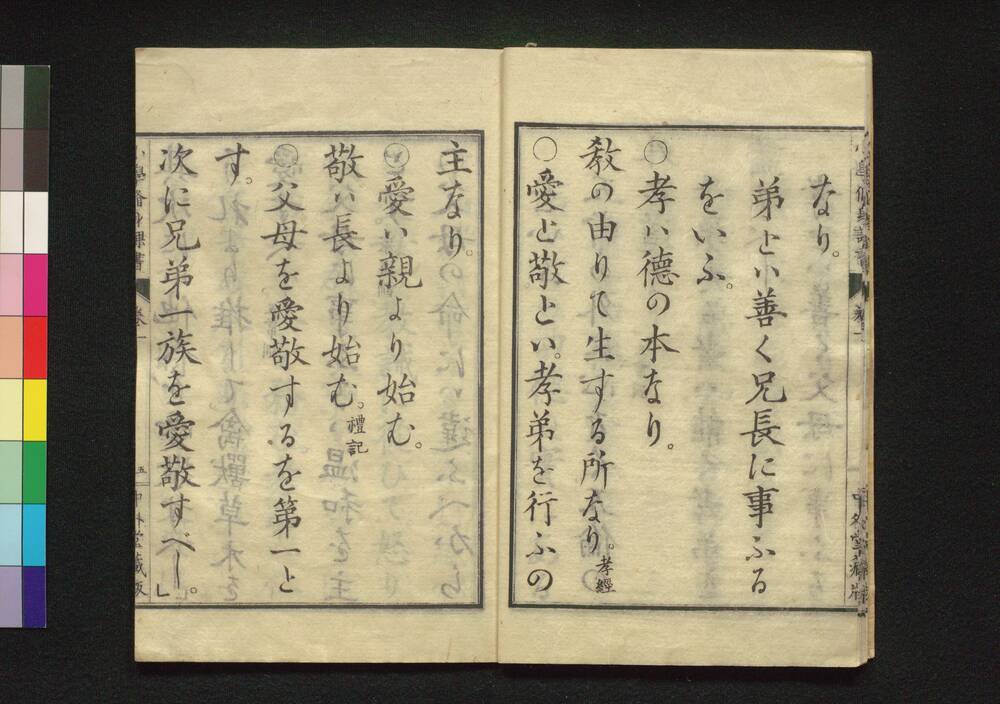 なり。
弟とハ善く兄長に事ふる
をいふ。
○孝ハ德の本なり。
教の由りて生する所なり。孝經
○愛と敬とハ。孝弟を行ふの
主なり。
○愛ハ親より始む。
敬ハ長より始む。禮記
○父母を愛敬するを第一と
す。
次に兄弟一族を愛敬すべし。」
小學脩身課書 卷一 五 中外堂藏版